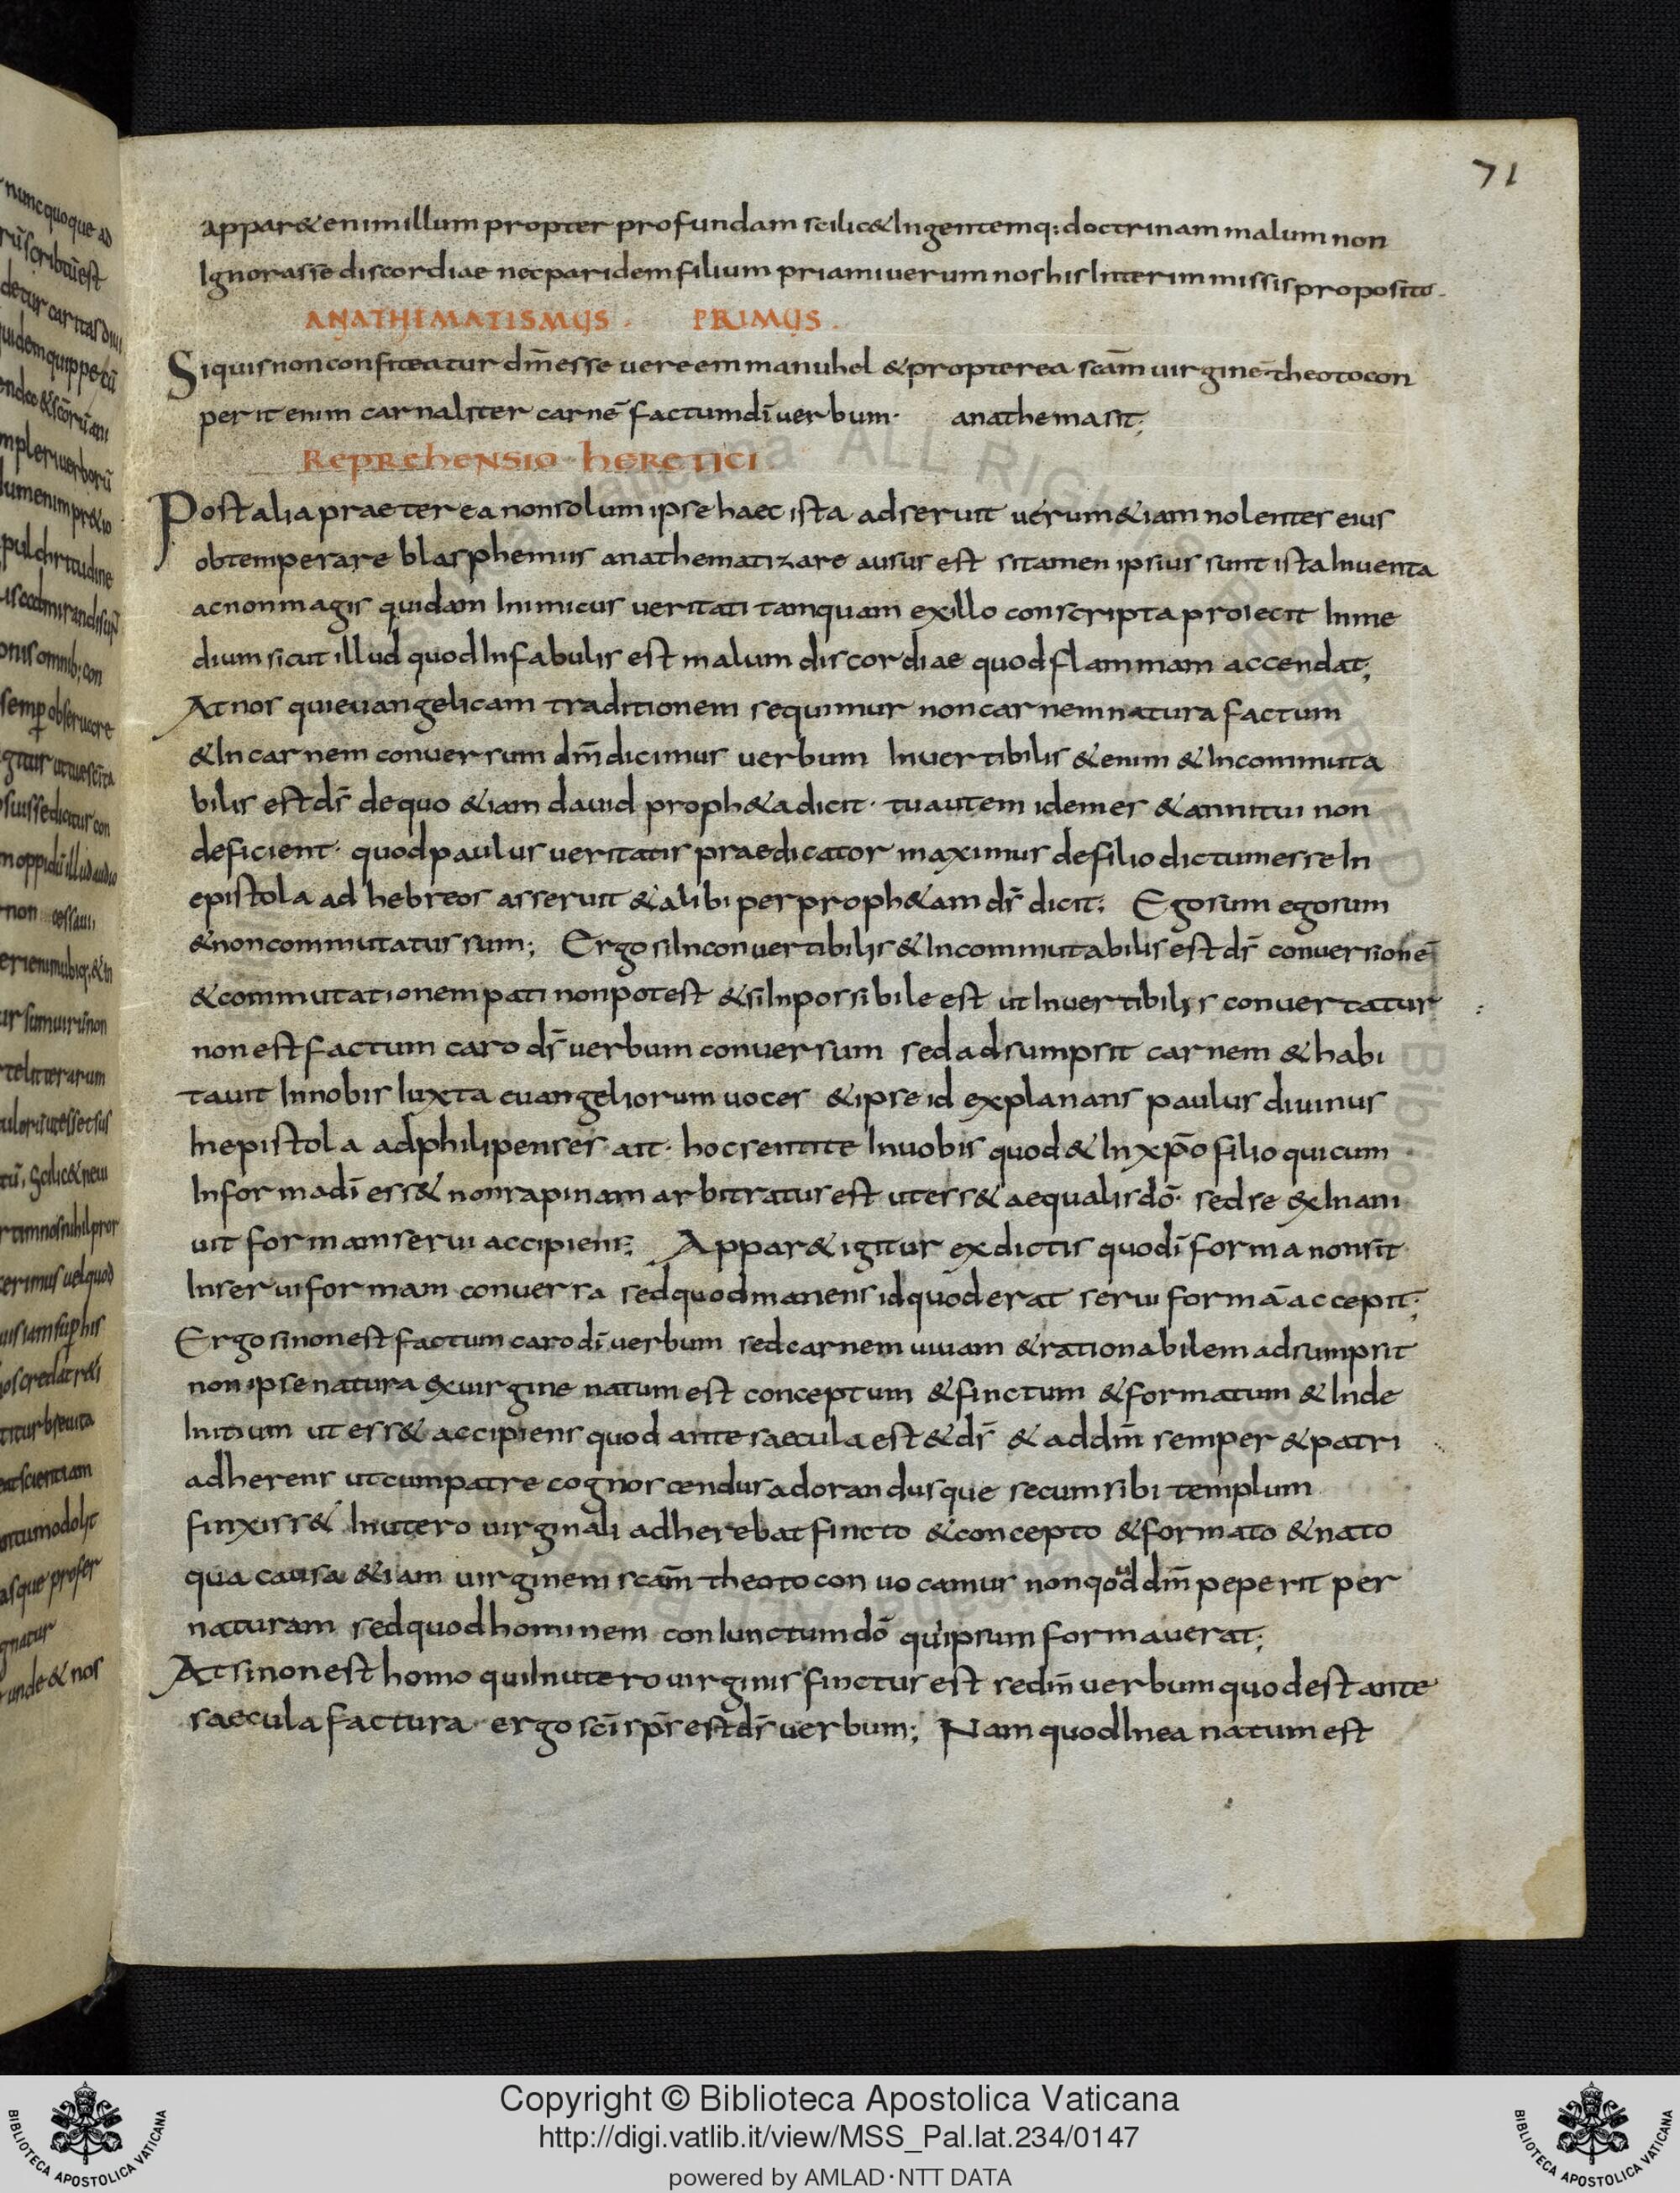 71
appar& enim illum propter profundam scilic& Ingentemq: doctrinam malum non
Ignorasse discordiae nec paridem filium priami uerum nos his Interim missis proposito.
ANATHEMATISMUS. PRIMUS.
Si quis non confiteatur dm̄ esse uere emmanuhel & propterea scām uirginē theotocon
perit enim carnaliter carnē factum dī uerbum· anathema sit;
REPREHENSIO HERETICI
Post alia praeterea non solum ipse haec ista adseruit uerum &iam nolentes eius
obtemperare blasphemiis anathematizare ausus est si tamen ipsius sunt ista Inuenta
ac non magis quidam Inimicus ueritati tamquam ex illo conscripta proiecit In me
dium sicut illud quod In fabulis est malum discordiae quod flammam accendat;
At nos qui euangelicam traditionem sequimur non carnem natura factum
& In carnem conuersum dm̄ dicimus uerbum Inuertibilis &enim & Incommuta
bilis est dī de quo &iam dauid proph&a dicit· tu autem idem es & anni tui non
deficient· quod paulus ueritatis praedicator maximus de filio dictum esse In
epistola ad hebreos asseruit & alibi per proph&am dī dicit; Ego sum ego sum
& non commutatus sum; Ergo si Inconuertibilis & Incommutabilis est dī conuersionē
& commutationem pati non potest & si Inpossibile est ut Inuertibilis conuertatur
non est factum caro dī uerbum conuersum sed adsumpsit carnem & habi
tauit In nobis Iuxta euangeliorum uoces & ipse id explanans paulus diuinus
In epistola ad philipenses ait· hoc sentite In uobis quod & In xp̄o filio qui cum
In forma dī ess& non rapinam arbitratus est ut ess& aequalis dō· sed se exInani
uit formam serui accipiens; Appar& igitur ex dictis quo dī forma non sit
In serui formam conuersa sed quod manens id quod erat serui formā accepit;
Ergo si non est factum caro dī uerbum sed carnem uiuam & rationabilem adsumpsit
non ipse natura ex uirgine natum est conceptum & finctum & formatum & Inde
Initium ut ess& accipiens quod ante saecula est & dī & ad dm̄ semper & patri
adherens ut cum patre cognoscendus adorandusque secum sibi templum
finxiss& In utero uirginali adherebat fincto & concepto & formato & nato
qua causa &iam uirginem scām theotocon uocamus non qod dm̄ peperit per
naturam sed quod hominem conIunctum dō qui ipsum formauerat;
At si non est homo qui In utero uirginis finctus est sed m̄ uerbum quod est ante
saecula factura ergo scī sp̄s est dī uerbum; Nam quod In ea natum est
Copyright © Biblioteca Apostolica Vaticana
http://digi.vatlib.it/view/MSS_Pal.lat.234/0147
powered by AMLAD·NTT DATA
BIBLIOTECA APOSTOLICA VATICANA
BIBLIOTECA APOSTOLICA VATICANA